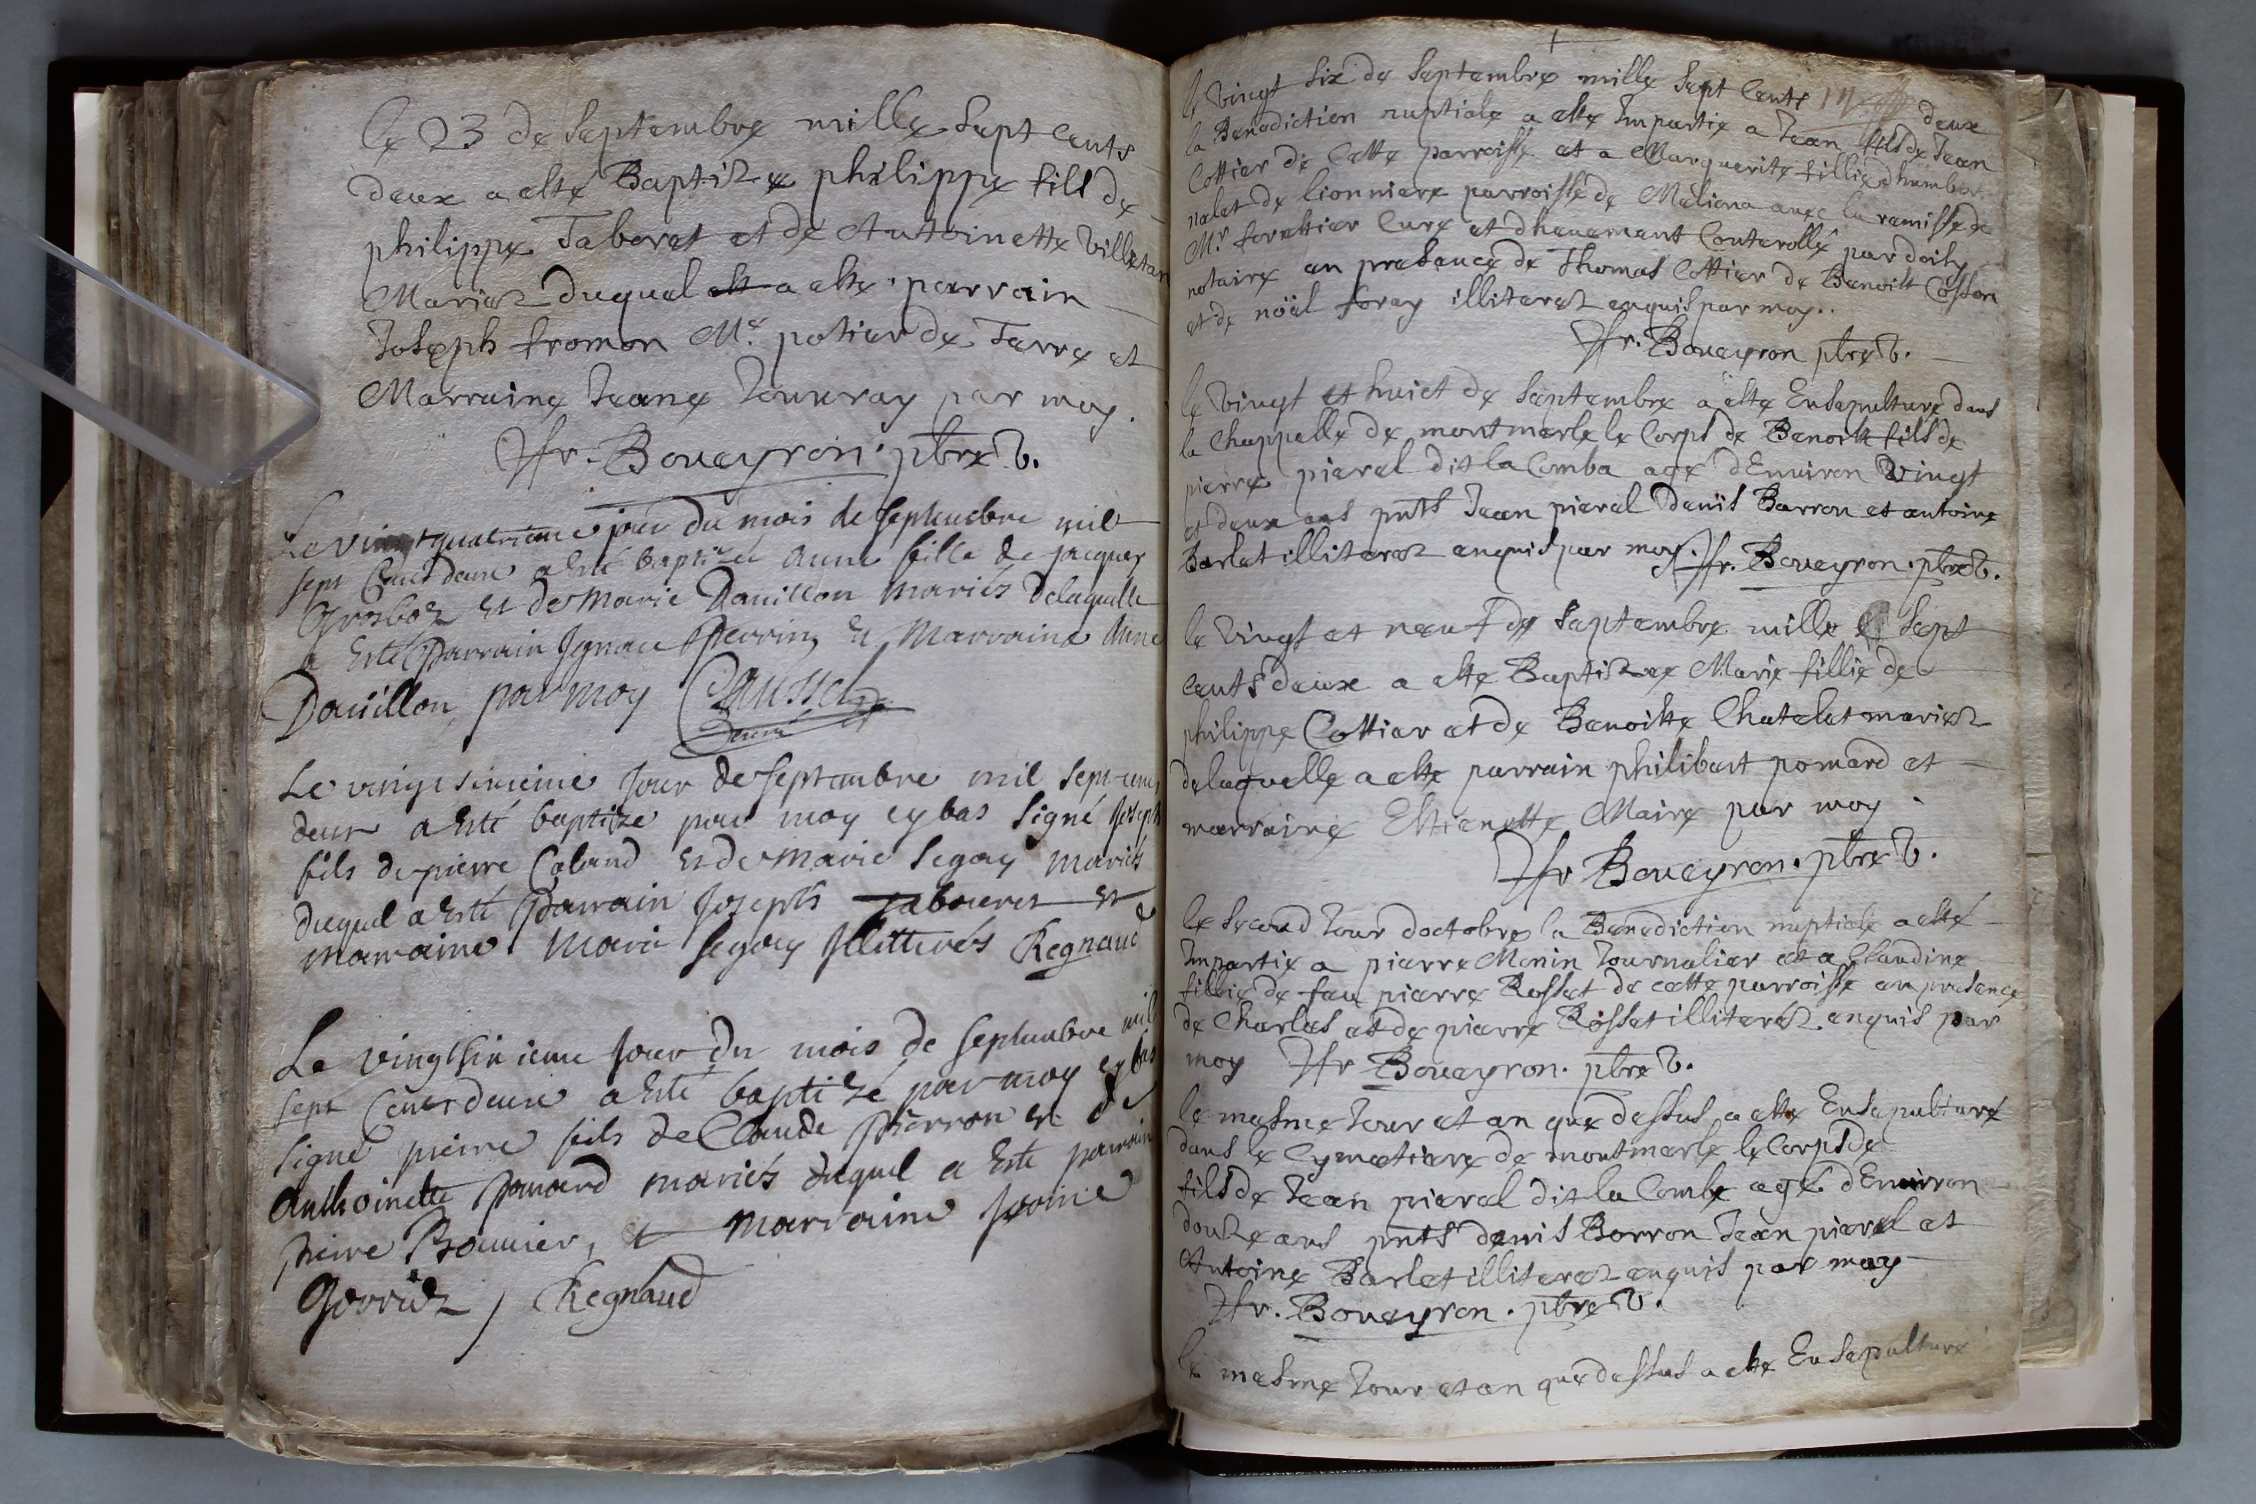 le 23 de septembre mille sept cents
deux a esté Baptize philippe fils de
philippe Taboret et de Antoinette Villetan
Mariez duquel est a esté parrain
Joseph fromon Mr. potier de Terre et
Marraine Jeane Jourray par moy.
Boueyron. pbre V.
Le vingt quatrieme jour du mois de septembre mil
sept cents deux a esté baptizée Anne fille de jacques
Grosboz et de Marie Dauillon mariés delaquelle
a Esté Parrain Ignace Perrin, et Marraine Anne
Dauillon, par moy
Le vingt sixieme jour de septembre mil sept cens
deux a esté baptizé par moy cybas signé Joseph
fils de pierre Caland et de Marie Segay mariés
duquel a esté Parrain Joseph Tabouret et
marraine Marie Segay Illitterés Regnaud
Le vingt sixieme jour du mois de septembre mil
sept Cens deux a esté baptizé par moy cybas
signé pierre fils de Claude pierron et de
Anthoinette Pomard mariés duquel a Esté parrain
pierre Bouuier, et marraine
Regnaud
le vingt six de septembre mille sept cents deux
la Benediction nuptiale a este Impartie a Jean fils de Jean
Cottier de Cette parroisse et a Marguerite fillie dhumbert
nalet de lionniere parroisse de Meliona avec la remisse de
Mr. forestier Curé et dheuement Conterollé par doity
notaire en presence de Thomas Cottier de Benoist Cosson
et de nöel foray illiterez enquis par moy..
Boueyron pbre V.
le vingt et huict de septembre a este Ensepulturé dans
la Chappelle de montmerle le Corps de Benoist fils de
pierre pieral dit la Comba agé d'Environ vingt
et deux ans pnts Jean pieral Denis Barron et antoine
Barlet illiterez enquis par moy. Boueyron. pbre V.
le vingt et neuf de septembre mille sept
cents deux a este Baptizée Marie fillie de
philippe Cottier et de Benoiste Chatelet mariez
delaquelle a este parrain philibert pomard et
marraine Estienette Maire par moy
Boueyron. pbre V.
le second Jour doctobre la Benediction nuptiale a esté
Impartie a pierre Monin Journalier et a Claudine
fillie de feu pierre Rosset de cette parroisse en presence
de Charles et de pierre Rosset illiterez enquis par
moy Boueyron. pbre V.
le mesme Jour et an que dessus a este Ensepulturé
dans le Cymetiere de montmerle le Corps de
fils de Jean pieral dit la Combe agé d'Environ
douze ans pnts denis Borron Jean pieral et
Antoine Barlet illiterez enquis par moy
Boueyron. pbre V.
le mesme Jour et an que dessus a este Ensepulturé